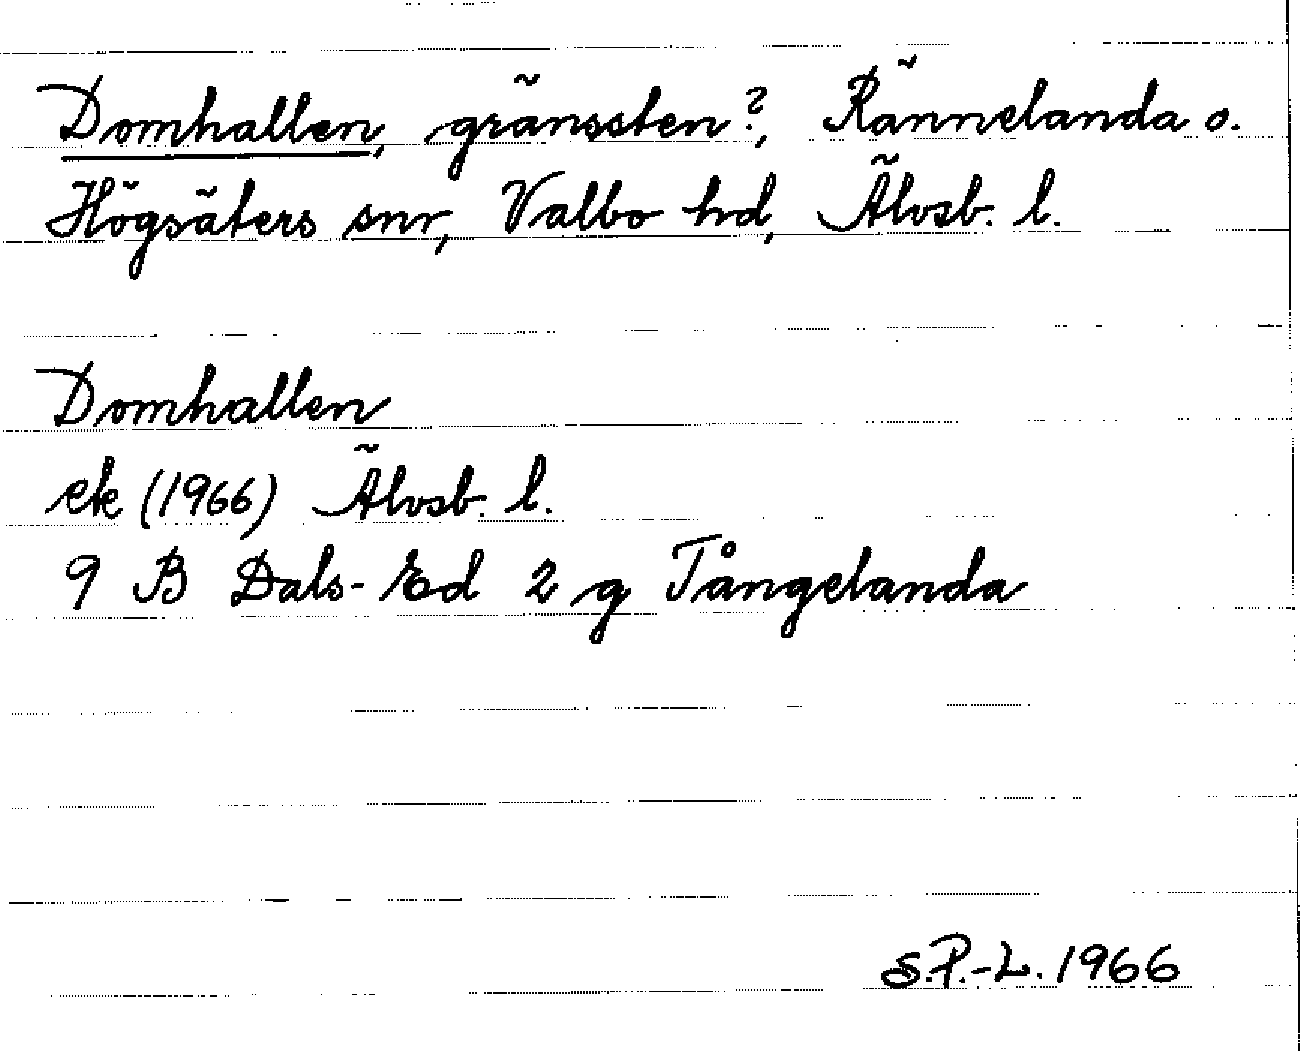 Domhallen, gränssten?, Rännelanda o.
Högsäters snr, Valbo hd, Älvsb. l.
Domhallen
ek (1966) Älvsb. l.
9 B Dals-Ed 2 g Tångelanda
S.P.-L. 1966